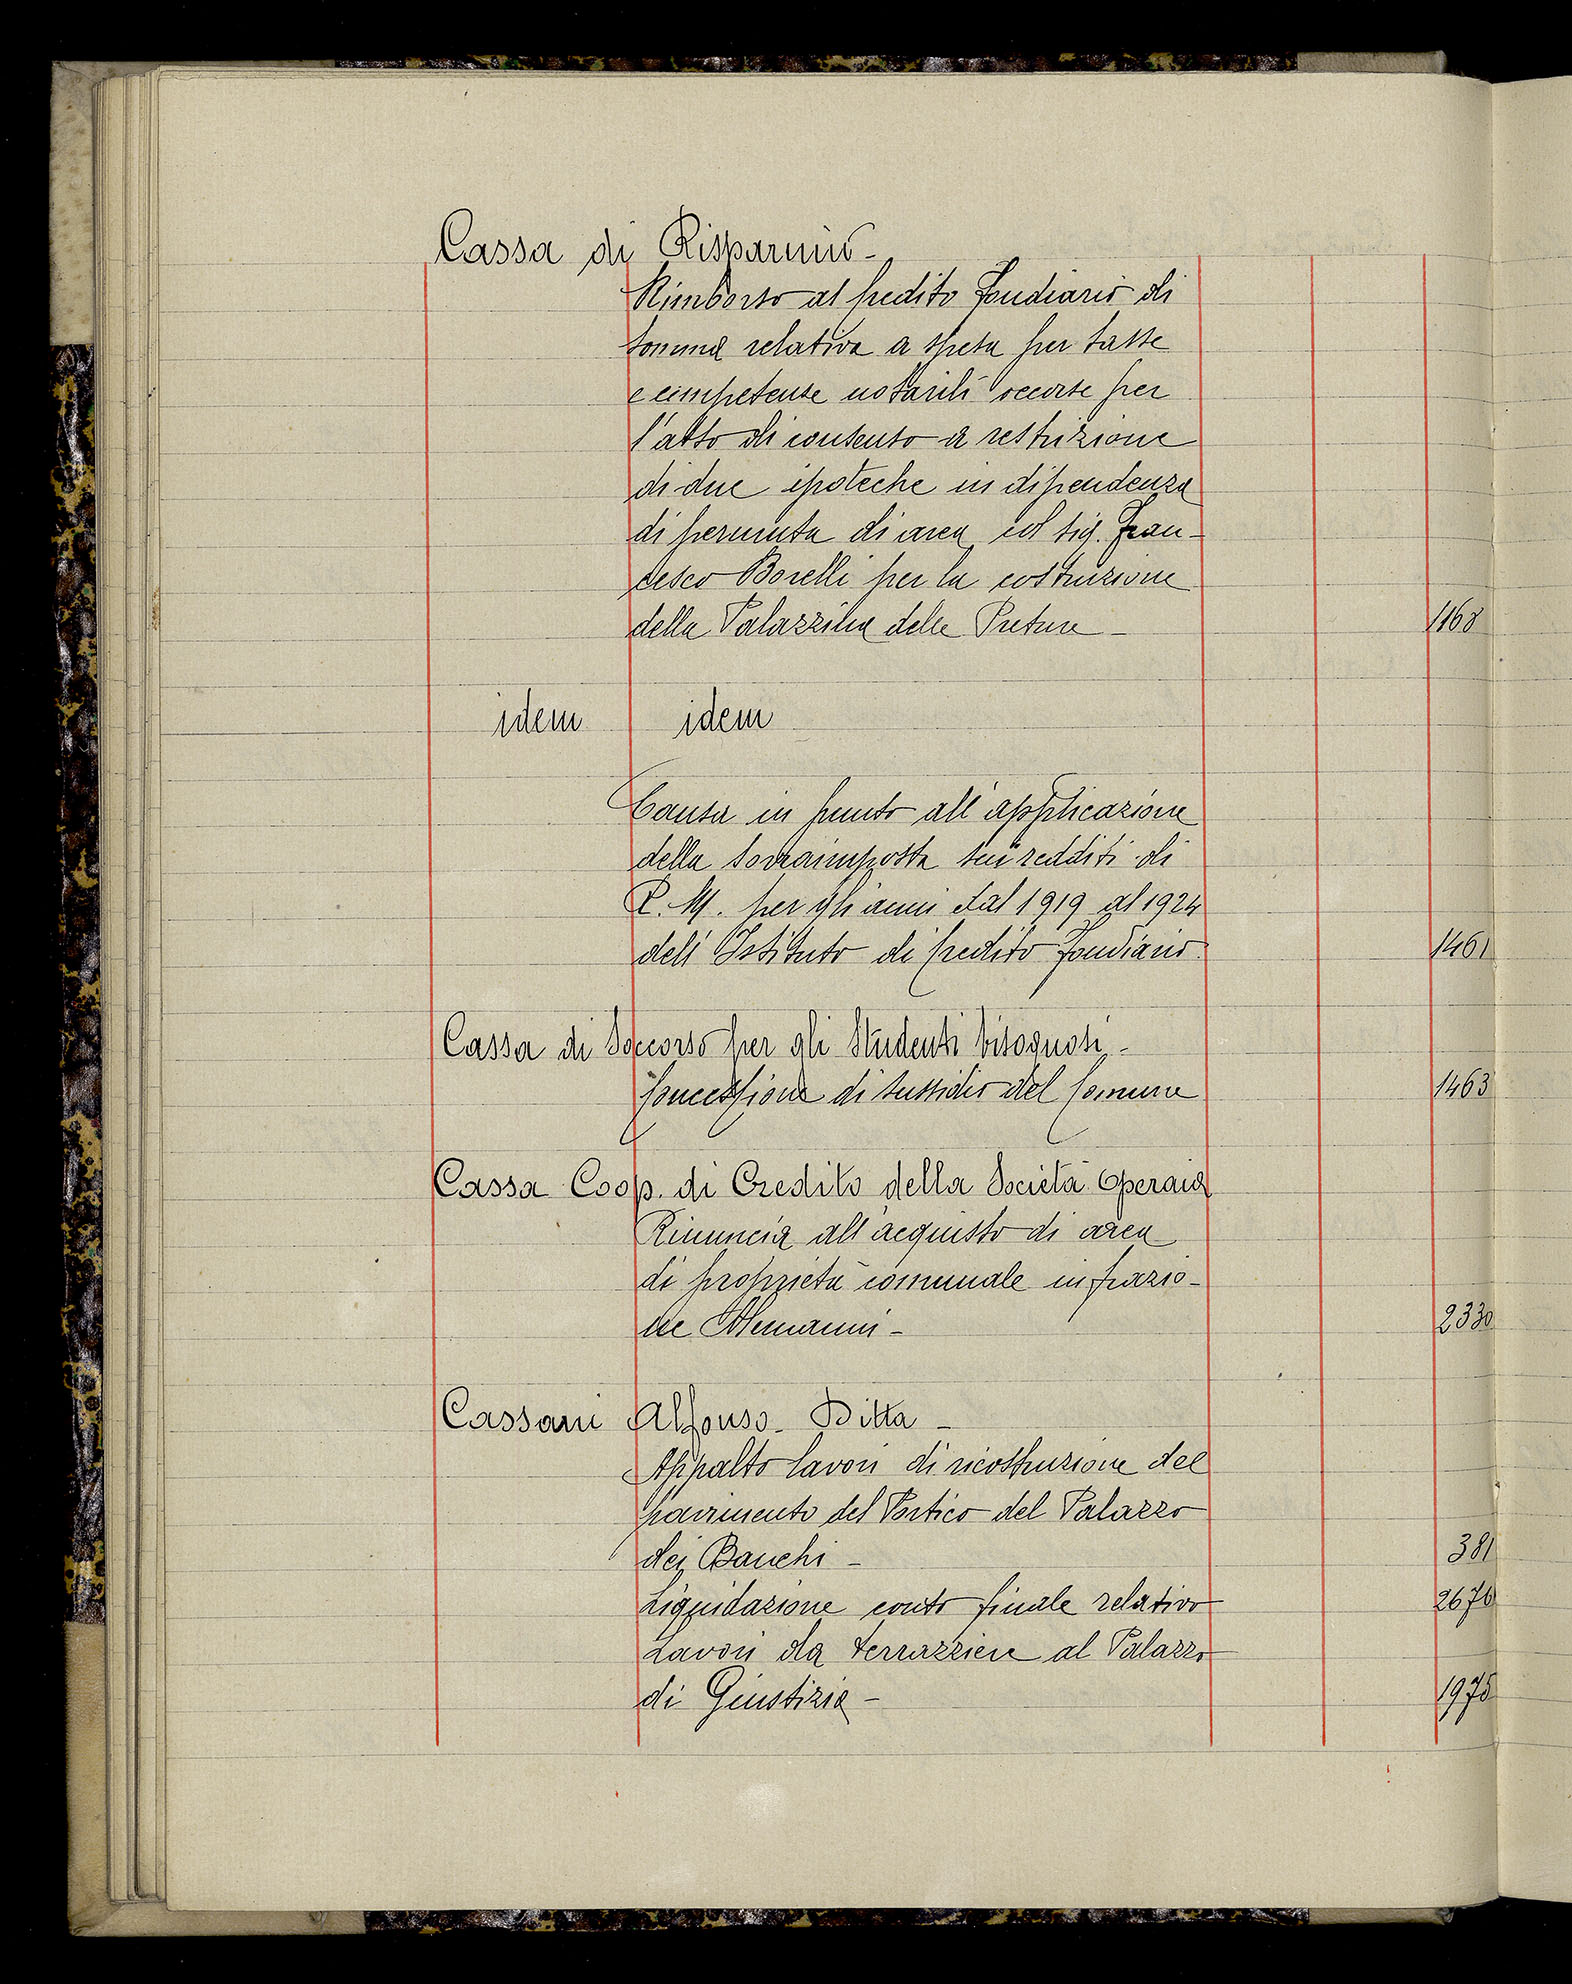 Cassa di Risparmio -
Rimborso al Credito Fondiario di
somma relativa a spesa per tasse
e competenze notarili occorse per
l'atto di consenso a restrizione
di due ipoteche in dipendenza
di permuta di area col sig. Fran-
cesco Borelli per la costruzione
della Palazzina delle Preture - 1168
idem idem
Causa in punto all'applicazione
della sovraimposta sui redditi di
R. M. per gli anni dal 1919 al 1924
dell'Istituto di Credito Fondiario. 1461
Cassa di Soccorso per gli Studenti bisognosi -
Concessione di sussidio del Comune 1463
Cassa Coop. di Credito della Società Operaia
Rinuncia all'acquisto di area
di proprietà comunale in frazio-
ne Alemanni - 2330
Cassani Alfonso - Ditta -
Appalto lavori di ricostruzione del
pavimento del Portico del Palazzo
dei Banchi - 381
Liquidazione conto finale relativo 2676
Lavori da terrazziere al Palazzo
di Giustizia - 1975